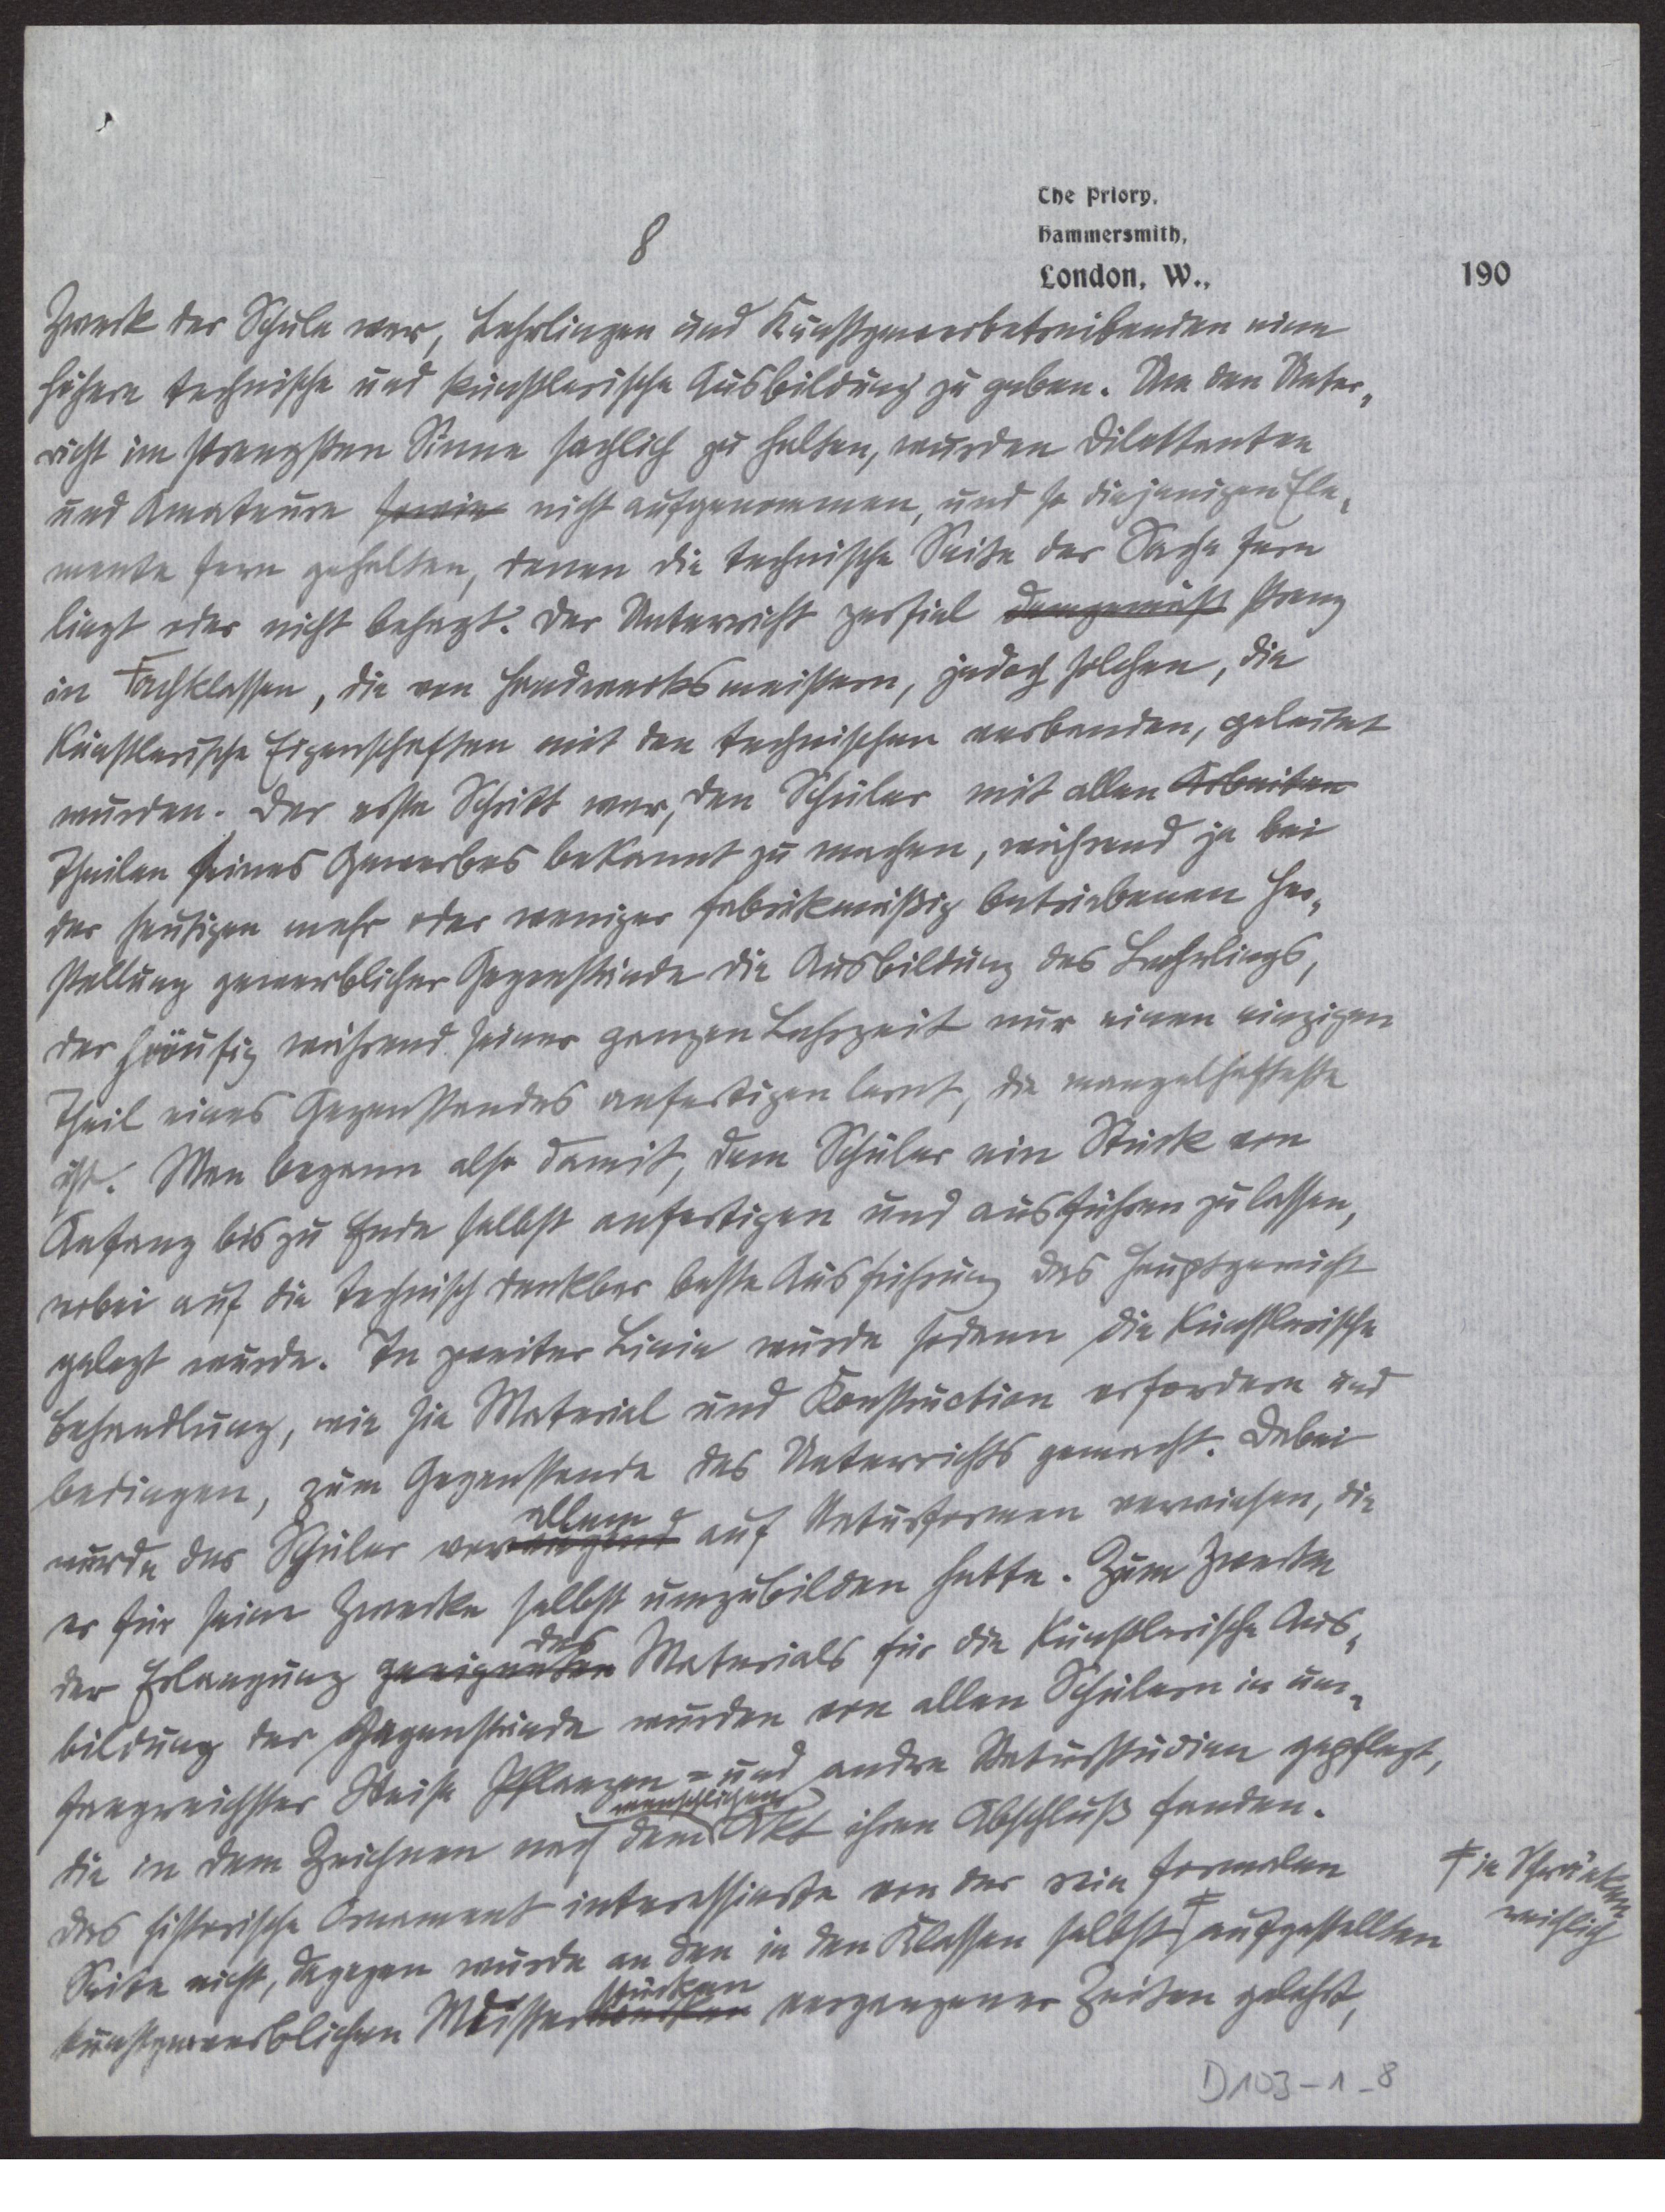 The Priory,
Hammersmith,
London, W.,
190
8
Zweck der Schule war, Lehrlingen und Kunstgewerbetreibenden eine
höhere technische und künstlerische Ausbildung zu geben. Um den Unter-
richt im strengsten Sinne sachlich zu halten, wurden Dilettanten
und Amateure sowie nicht aufgenommen, und so diejenigen Ele-
mente fern gehalten, denen die technische Seite der Sache fern
liegt oder nicht behagt. Der Unterricht zerfiel demgemäß streng
in Fachklassen, die von Handwerksmeistern, jedoch solchen, die
künstlerische Eigenschaften mit den technischen verbanden, geleitet
wurden. Der erste Schritt war, den Schüler mit allen Arbeiten
Theilen seines Gewerbes bekannt zu machen, während ja bei
der heutigen mehr oder weniger fabrikmäßig betriebenen Her-
stellung gewerblicher Gegenstände die Ausbildung des Lehrlings,
der häufig während seiner ganzen Lehrzeit nur einen einzigen
Theil eines Gegenstandes anfertigen lernt, die mangelhafteste
ist. Man begann also damit, dem Schüler ein Stück von
Anfang bis zu Ende selbst anfertigen und ausführen zu lassen,
wobei auf die technisch denkbar beste Ausführung das Hauptgewicht
gelegt wurde. In zweiter Linie wurde sodann die künstlerische
Behandlung, wie sie Material und Konstruction erfordern und
bedingen, zum Gegenstande des Unterrichts gemacht. Dabei
allem
wurde der Schüler vor auf Naturformen verwiesen, die
er für seine Zwecke selbst umzubilden hatte. Zum Zwecke
des
der Erlangung geeigneten Materials für die künstlerische Aus-
bildung der Gegenstände wurden von allen Schülern in um-
fangreichster Weise Pflanzen- und andre Naturstudien gepflegt,
menschlichen
die in dem Zeichnen nach dem Akt ihren Abschluß fanden.
Das historische Ornament interessierte von der rein formalen
Seite nicht, dagegen wurde an den in den Klassen selbst ǂ aufgestellten
ǂ in Schränken
reichlich
stücken
kunstgewerblichen Meister vergangener Zeiten gelehrt,
D103-1-8